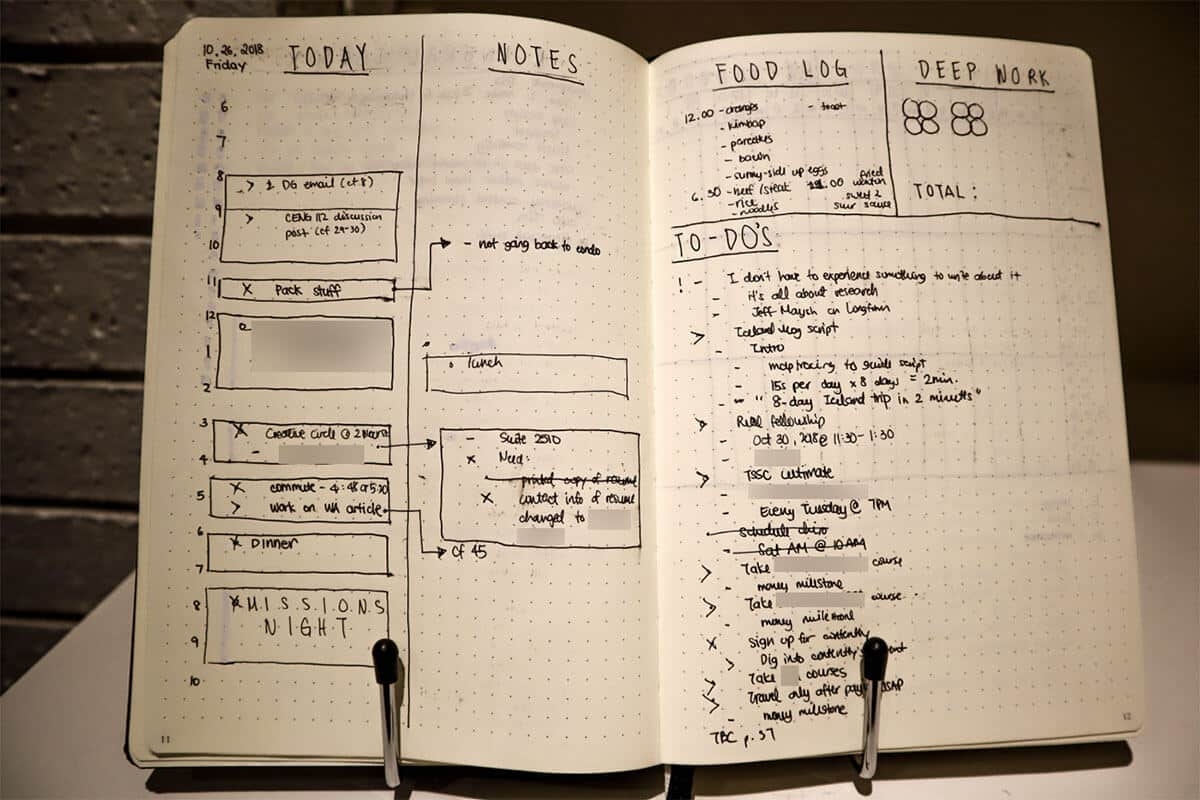 10.26.2018
Friday
TODAY
6
7
8
> DG email (cf 8)
9
> CENG 112 discussion
post (cf 29-30)
10
11
x Pack stuff
12
1
2
3
x Creative Circle @ 2
-
4
5
x commute - 4:48 or 5:30
> work on WA article
6
x DINNER
7
8
x M.I.S.S.I.O.N.S
N.I.G.H.T
9
10
11
NOTES
- not going back to condo
lunch
- Suite 2510
x Need:
- printed copy of resume
x contact info of resume
changed to
cf 45
FOOD LOG
12.00 - - toast
- kimbap
- pancakes
- bacon
- sunny-side up eggs
6.30 - beef/steak .00 fried wonton
- rice sweet &
- noodles sour sauce
DEEP WORK
TOTAL:
TO-DO'S
! - I don't have to experience something to write about it
- It's all about research
- Jeff Maysh on Longform
> Iceland vlog script
- Intro
- map tracing to guide script
- 15s per day x 8 days = 2min.
- "8-day Iceland trip in 2 minutes"
> Real fellowship
- Oct 30, 2018 @ 11:30 - 1:30
-
> TSSC Ultimate
-
- Every Tuesday @ 7PM
Schedule
- Sat AM @ 10AM
> Take course
- money milestone
> Take course
- money milestone
x Sign up for contently
> Dig into contently's
> Take courses
> Travel only after pay ASAP
- money milestone
TBC p. 57
12